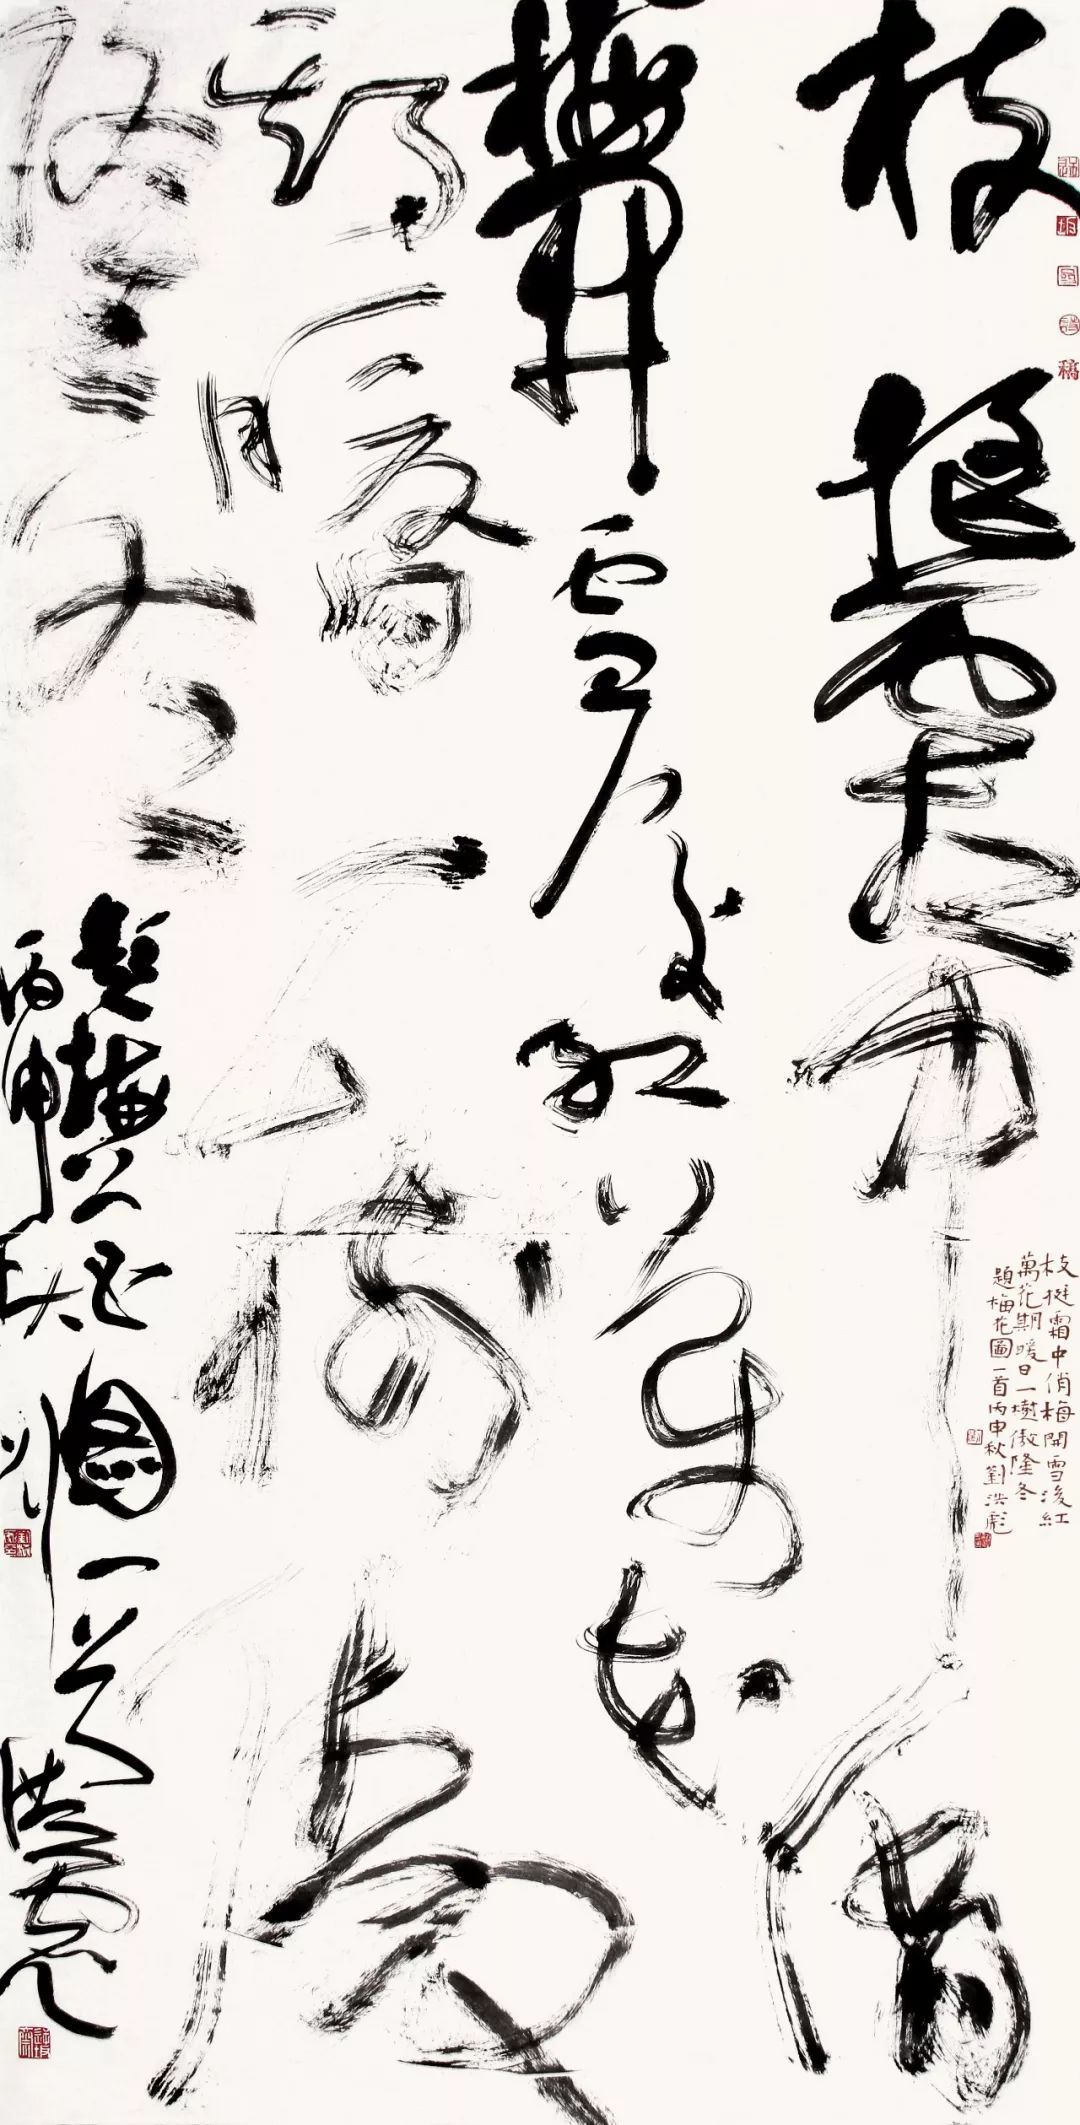 枝挺霜中俏
梅開雪後紅萬花
期暖日一樹傲
隆冬
題梅花圖一首
丙申秋洪彪
枝挺霜中俏梅開雪後紅
萬花期暖日一樹傲隆冬
題梅花圖一首丙申秋劉洪彪